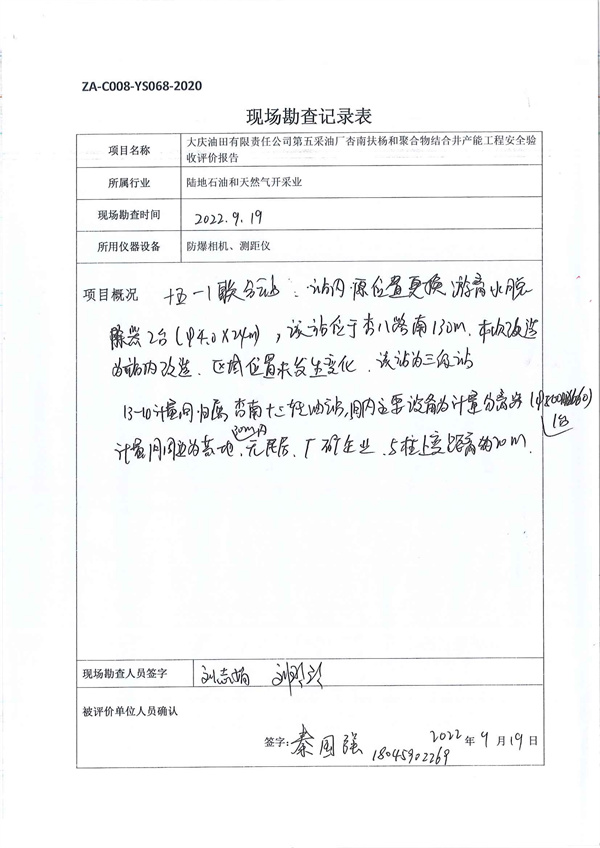 ZA-C008-YS068-2020
现场勘查记录表
项目名称
大庆油田有限责任公司第五采油厂杏南扶杨和聚合物结合井产能工程安全验
收评价报告
所属行业
陆地石油和天然气开采业
现场勘查时间
2022.9.19
所用仪器设备
防爆相机、测距仪
项目概况 十五一1联合站:站内原位置更换游离水脱
除器2台(φ4.0×24m),该站位于杏八路南130m.本次改造
为站内改造.区域位置未发生变化.该站为三级站
13-10计量间归属杏南十三转油站,间内主要设备为计量分离器
1台
30m内
计量间周边为草地.无民居、厂矿企业.与
距离约20m.
现场勘查人员签字
刘志娟
被评价单位人员确认
签字:秦国强 2022年9月19日
18045902269